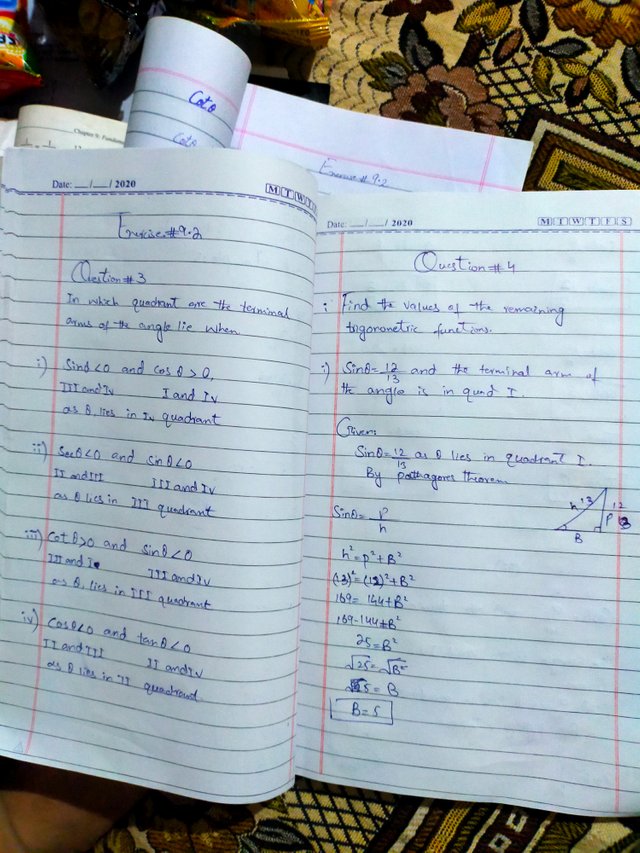 Cotθ
Cotθ
Exercise # 9.2
Date: __/__/ 2020
M T W T
Exercise # 9.2
Question # 3
In which quadrant are the terminal
arms of the angle lie when
i) Sinθ<0 and cos θ > 0,
III and IV I and IV
as θ, lies in IV quadrant
ii) Secθ<0 and sinθ<0
II and III III and IV
as θ lies in III quadrant
iii) Cotθ>0 and sinθ<0
III and I III and IV
as θ, lies in III quadrant
iv) Cosθ<0 and tanθ<0
II and III II and IV
as θ lies in II quadrant
Date: __/__/ 2020
M T W T F S
Question # 4
i Find the values of the remaining
trigonometric functions.
i) Sinθ=12/13 and the terminal arm of
the angle is in quad I.
Given:
Sinθ=12/13 as θ lies in quadrant I.
By pathagores theorem
Sinθ = P/h
h 13 12
P
B
h²=P²+B²
(13)²=(12)²+B²
169= 144+B²
169-144+B²
25=B²
√25=√B²
5 = B
B=5